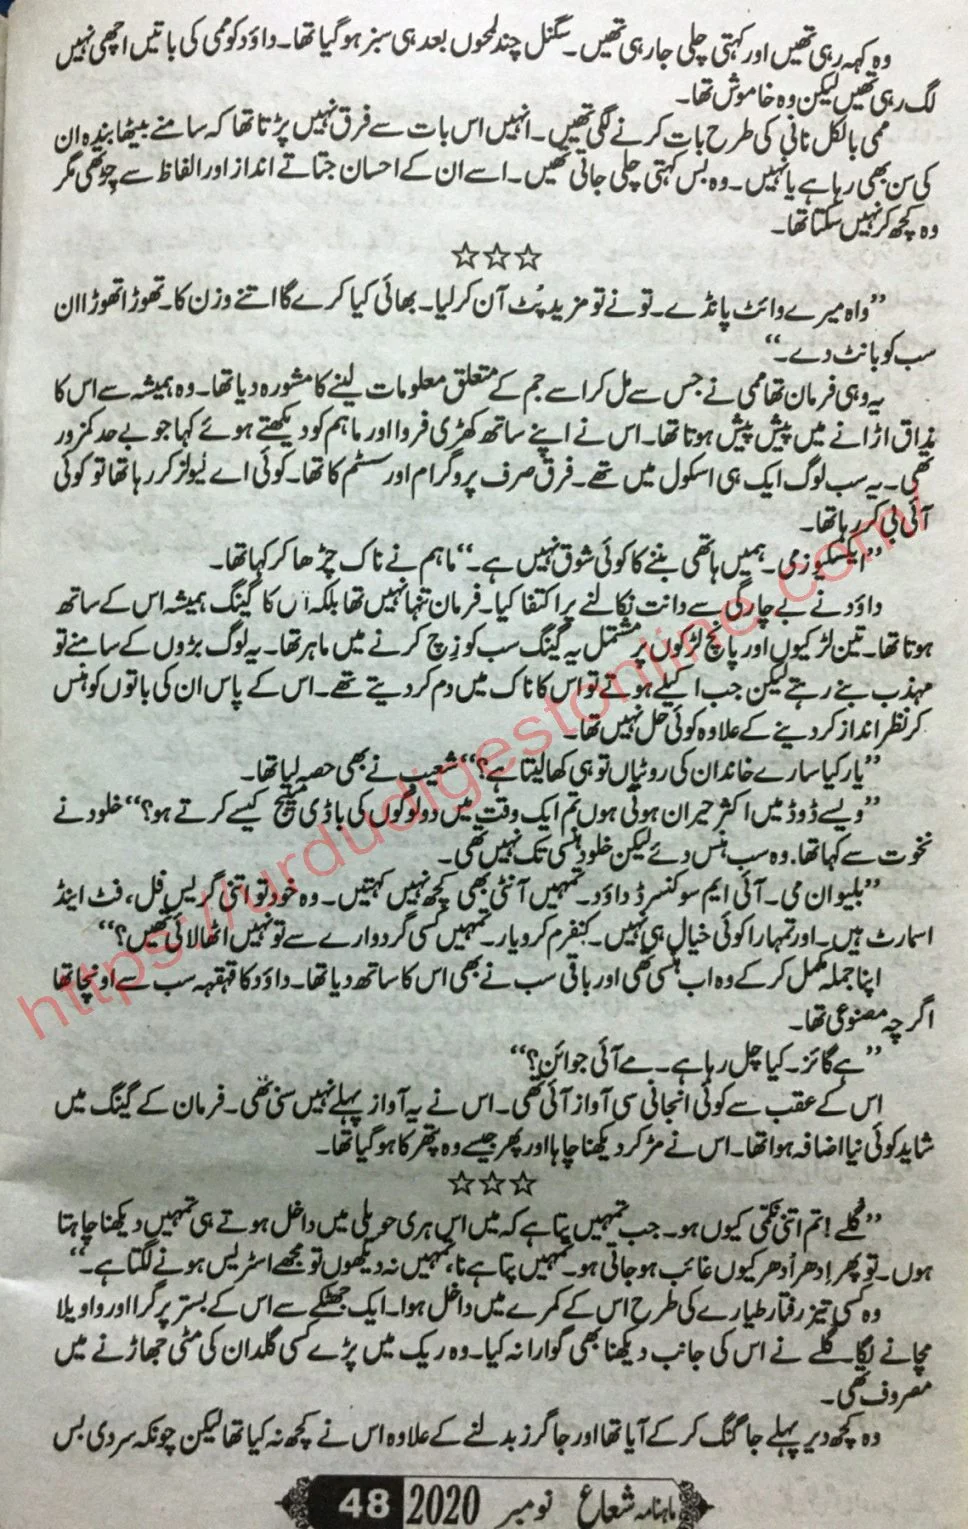 وہ کہہ رہی تھیں اور کہتی چلی جا رہی تھیں۔ سگنل چند لمحوں بعد ہی سبز ہو گیا تھا۔ داؤد کو ممی کی باتیں اچھی نہیں
لگ رہی تھیں لیکن وہ خاموش تھا۔
ممی بالکل نانی کی طرح بات کرنے لگی تھیں۔ انہیں اس بات سے فرق نہیں پڑتا تھا کہ سامنے بیٹھا بندہ ان
کی سن بھی رہا ہے یا نہیں۔ وہ بس کہتی چلی جاتی تھیں۔ اسے ان کے احسان جتاتے انداز اور الفاظ سے چڑ تھی مگر
وہ کچھ کر نہیں سکتا تھا۔
☆☆☆
”واہ میرے وائٹ پانڈے۔ تو نے تو مزید پُٹ آن کر لیا۔ بھائی کیا کرے گا اتنے وزن کا۔ تھوڑا تھوڑا ان
سب کو بانٹ دے۔“
یہ وہی فرمان تھا ممی نے جس سے مل کر اسے جم کے متعلق معلومات لینے کا مشورہ دیا تھا۔ وہ ہمیشہ سے اس کا
مذاق اڑانے میں پیش پیش ہوتا تھا۔ اس نے اپنے ساتھ کھڑی فروا اور ماہم کو دیکھتے ہوئے کہا جو بے حد کمزور
تھی۔ یہ سب لوگ ایک ہی اسکول میں تھے۔ فرق صرف پروگرام اور سسٹم کا تھا۔ کوئی اے لیولز کر رہا تھا تو کوئی
آئی بی کر رہا تھا۔
”ایکسکیوزمی۔ ہمیں ہاتھی بننے کا کوئی شوق نہیں ہے۔“ ماہم نے ناک چڑھا کر کہا تھا۔
داؤد نے بے چارگی سے دانت نکالنے پر اکتفا کیا۔ فرمان تنہا نہیں تھا بلکہ اس کا گینگ ہمیشہ اس کے ساتھ
ہوتا تھا۔ تین لڑکیوں اور پانچ لڑکوں پر مشتمل یہ گینگ سب کو زچ کرنے میں ماہر تھا۔ یہ لوگ بڑوں کے سامنے تو
مہذب بنے رہتے لیکن جب اکیلے ہوتے تو اس کا ناک میں دم کر دیتے تھے۔ اس کے پاس ان کی باتوں کو ہنس
کر نظر انداز کر دینے کے علاوہ کوئی حل نہیں تھا۔
”یار کیا سارے خاندان کی روٹیاں تو ہی کھا لیتا ہے؟“ شعیب نے بھی حصہ لیا تھا۔
”ویسے ڈوڈ میں اکثر حیران ہوتی ہوں تم ایک وقت میں دو لوگوں کی باڈی مینیج کیسے کرتے ہو؟“ خلود نے
نخوت سے کہا تھا۔ وہ سب ہنس دئے لیکن خلود ہنسی تک نہیں تھی۔
”بلیو ان می۔ آئی ایم سو کنسرڈ داؤد۔ تمہیں آنٹی بھی کچھ نہیں کہتیں۔ وہ خود تو اتنی گریس فل، فٹ اینڈ
اسمارٹ ہیں۔ اور تمہارا کوئی خیال ہی نہیں۔ کنفرم کرو یار۔ تمہیں کسی گردوارے سے تو نہیں اٹھا لائی تھیں؟“
اپنا جملہ مکمل کر کے وہ اب ہنسی تھی اور باقی سب نے بھی اس کا ساتھ دیا تھا۔ داؤد کا قہقہہ سب سے اونچا تھا
اگرچہ مصنوعی تھا۔
”ہے گائز۔ کیا چل رہا ہے۔ مے آئی جوائن؟“
اس کے عقب سے کوئی انجانی سی آواز آئی تھی۔ اس نے یہ آواز پہلے نہیں سنی تھی۔ فرمان کے گینگ میں
شاید کوئی نیا اضافہ ہوا تھا۔ اس نے مڑ کر دیکھنا چاہا اور پھر جیسے وہ پتھر کا ہو گیا تھا۔
☆☆☆
”گلے! تم اتنی نکمی کیوں ہو۔ جب تمہیں پتا ہے کہ میں اس ہری حویلی میں داخل ہوتے ہی تمہیں دیکھنا چاہتا
ہوں۔ تو پھر اِدھر اُدھر کیوں غائب ہو جاتی ہو۔ تمہیں پتا ہے نا، تمہیں نہ دیکھوں تو مجھے اسٹریس ہونے لگتا ہے۔“
وہ کسی تیز رفتار طیارے کی طرح اس کے کمرے میں داخل ہوا۔ ایک جھٹکے سے اس کے بستر پر گرا اور واویلا
مچانے لگا۔ گلے نے اس کی جانب دیکھنا بھی گوارا نہ کیا۔ وہ ریک میں پڑے کسی گلدان کی مٹی جھاڑنے میں
مصروف تھی۔
وہ کچھ دیر پہلے جاگنگ کر کے آیا تھا اور جاگرز بدلنے کے علاوہ اس نے کچھ نہ کیا تھا لیکن چونکہ سردی بس
ماہنامہ شعاع نومبر 2020 48
https://urdudigestonline.com/